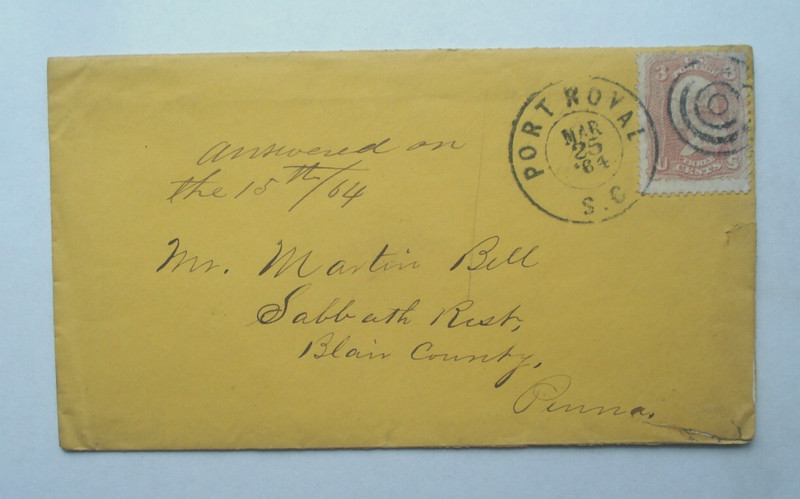 PORT ROYAL
MAR
25
'64
S.C
3 3
U S
THREE
CENTS
answered on
the 15th/64
Mr. Martin Bell
Sabbath Rest,
Blair County,
Penna.